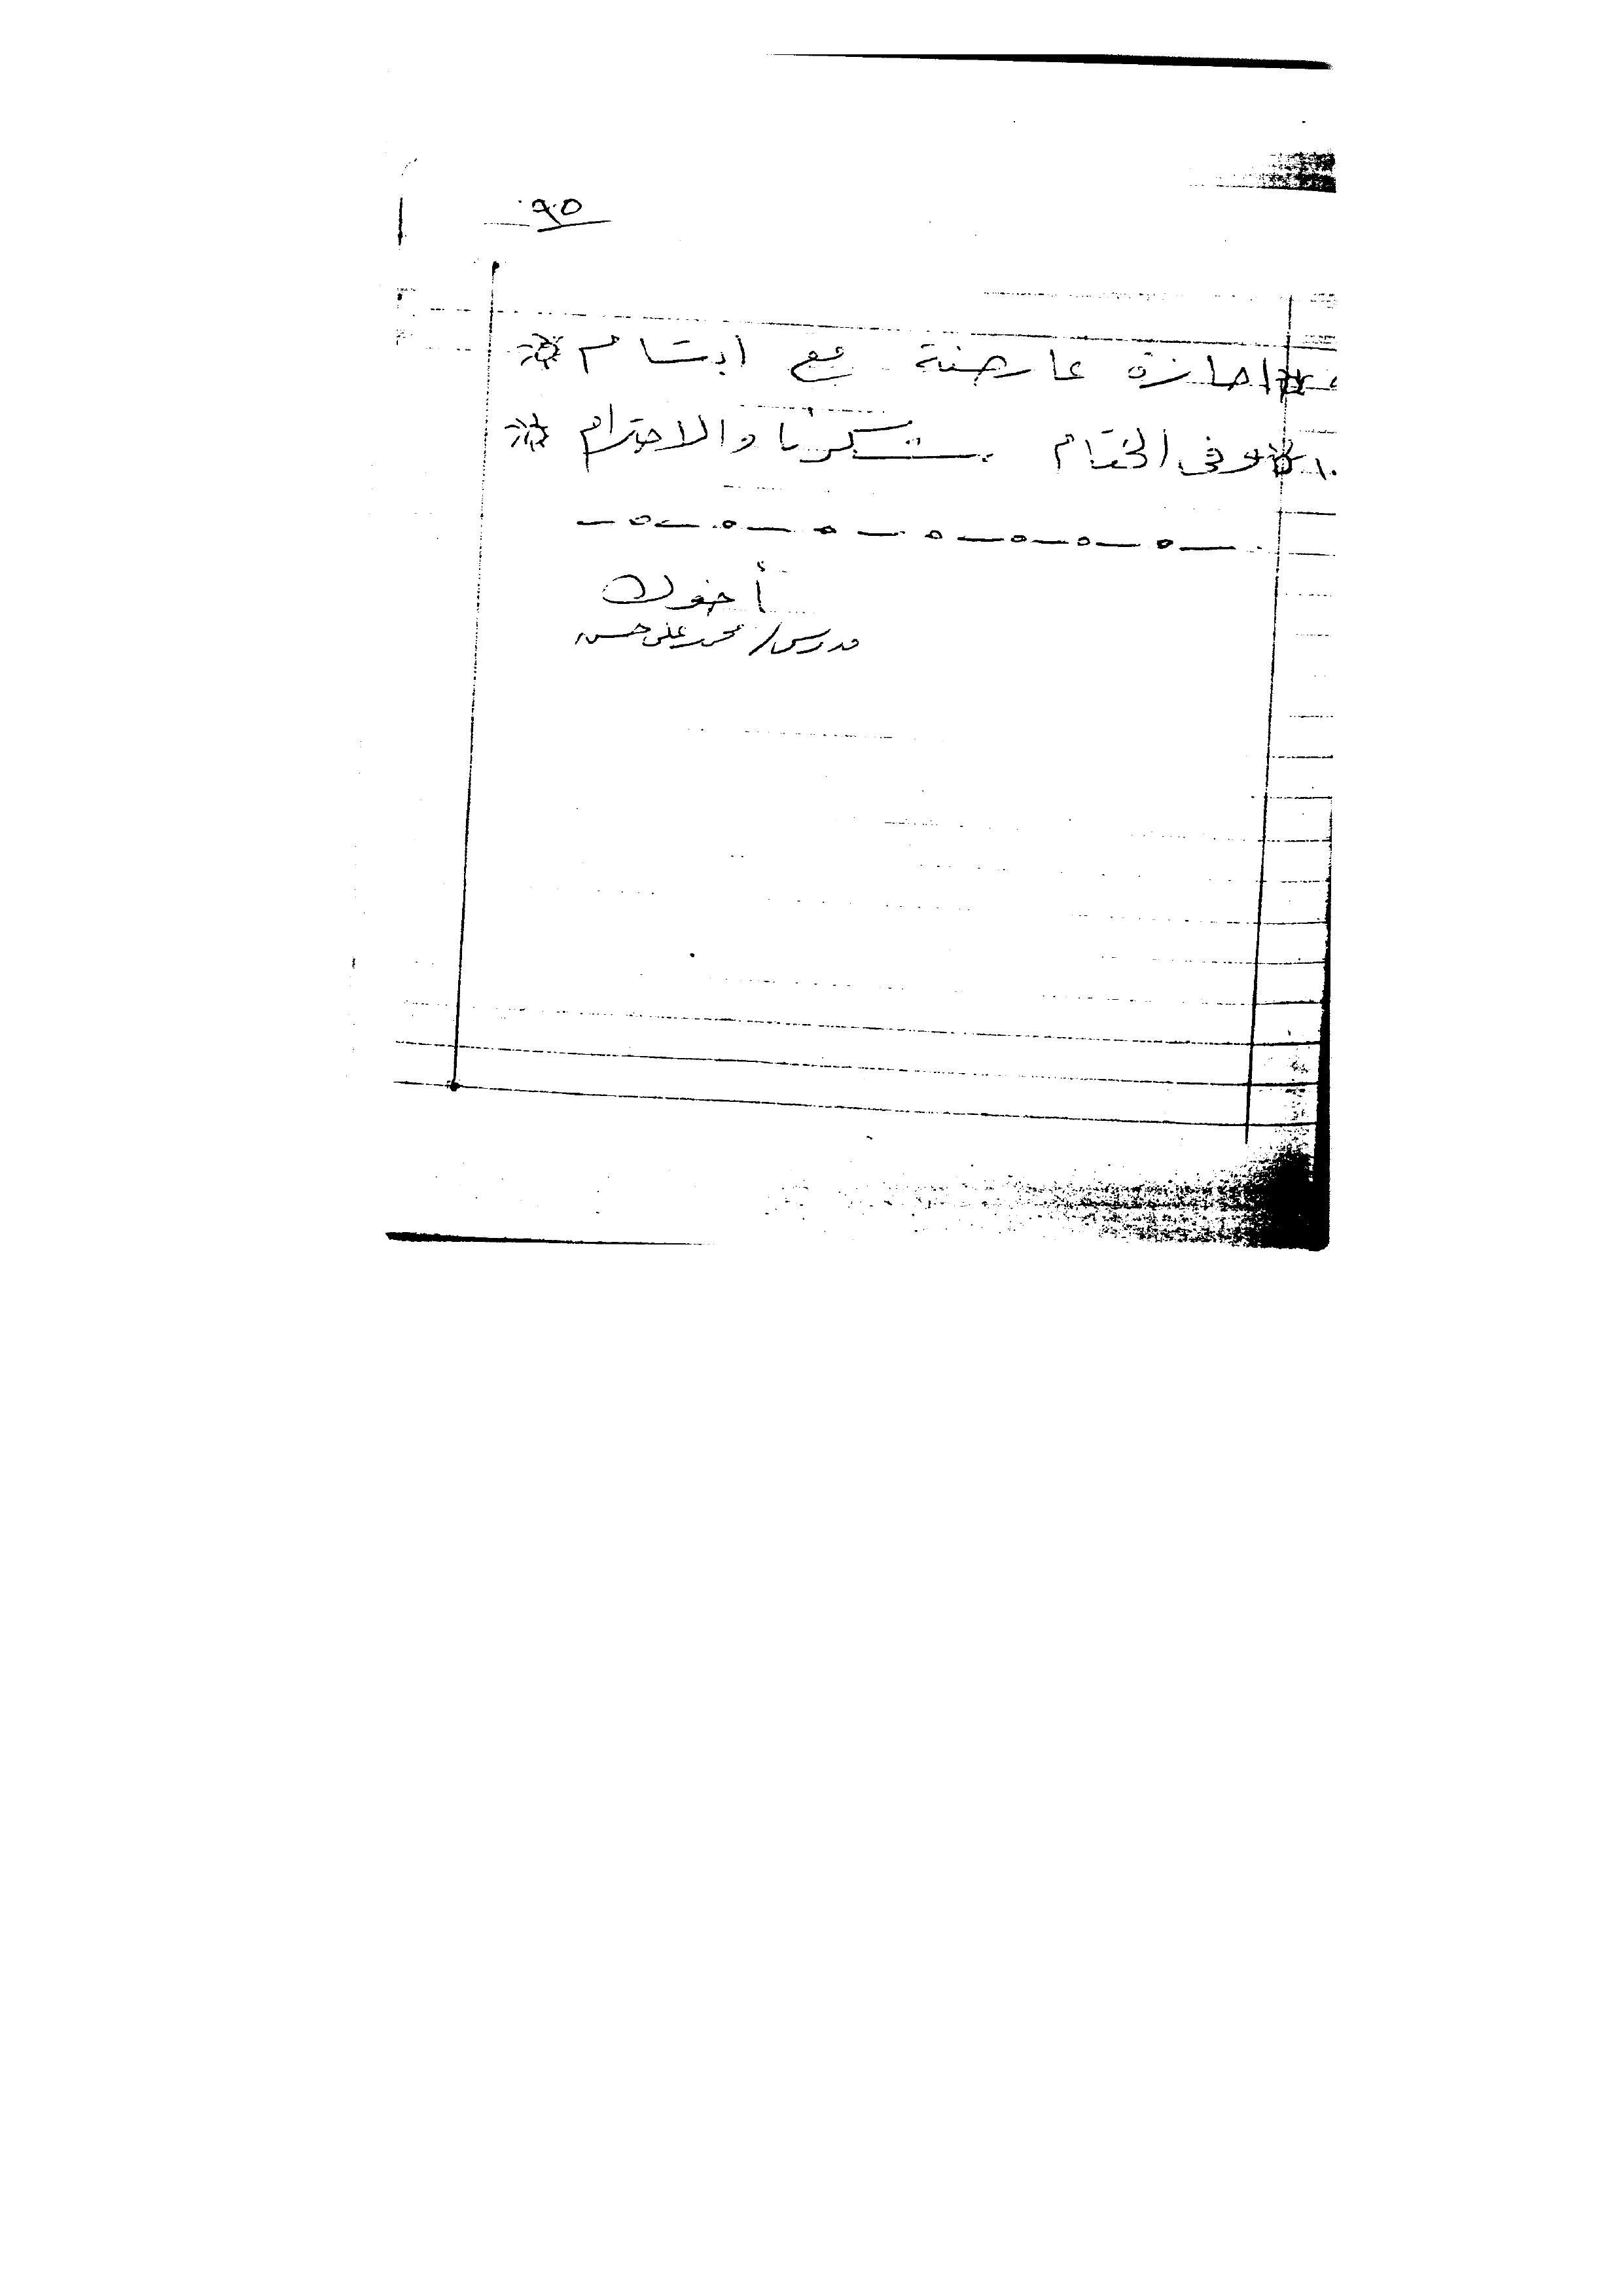 ٩٥
اجازة عارضة مع ابتسام
١٠ وفى الختام شكرنا والاحترام
أخوك
مدرس / محمد على حسن